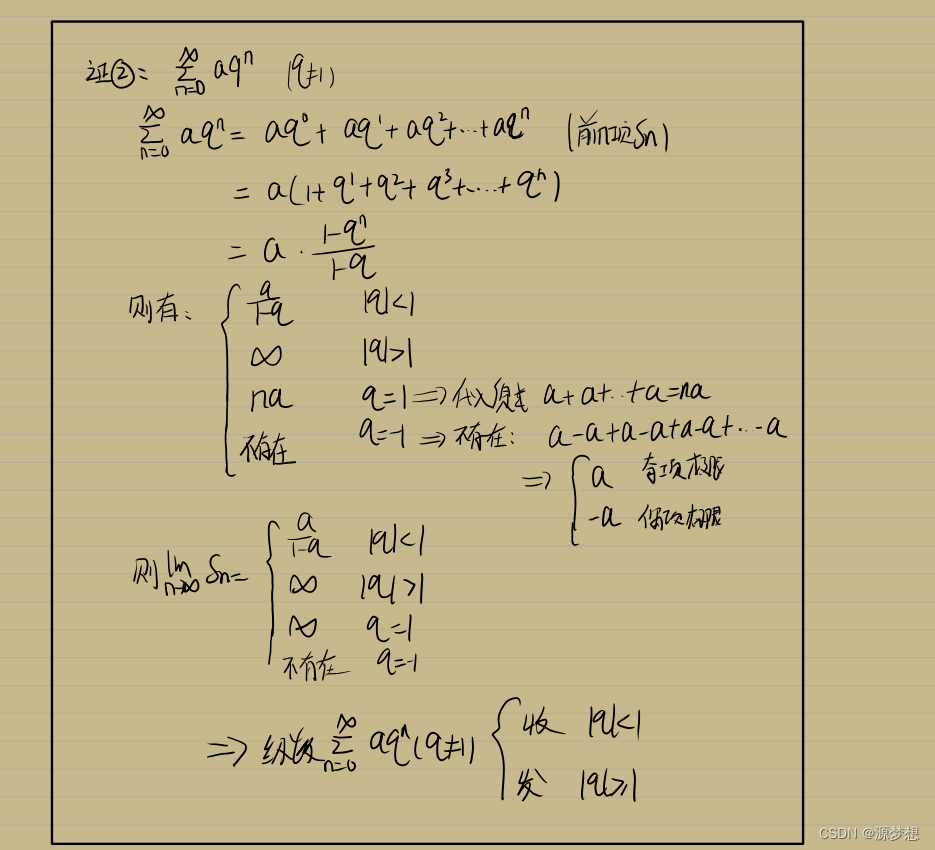 证②: ∑_{n=0}^{∞} aq^n (q≠1)
∑_{n=0}^{∞} aq^n = aq^0 + aq^1 + aq^2 + ... + aq^n (前n项Sn)
= a(1 + q^1 + q^2 + q^3 + ... + q^n)
= a · (1-q^n)/(1-q)
则有: { a/(1-q) |q|<1
∞ |q|>1
na q=1 ⇒ 代入原式 a+a+...+a=na
不存在 q=-1 ⇒ 不存在: a-a+a-a+a-a+...-a
⇒ { a 奇项极限
-a 偶项极限
则 lim_{n→∞} Sn = { a/(1-q) |q|<1
∞ |q|>1
∞ q=1
不存在 q=-1
⇒ 级数 ∑_{n=0}^{∞} aq^n (q≠1) { 收 |q|<1
发 |q|≥1
CSDN @源梦想